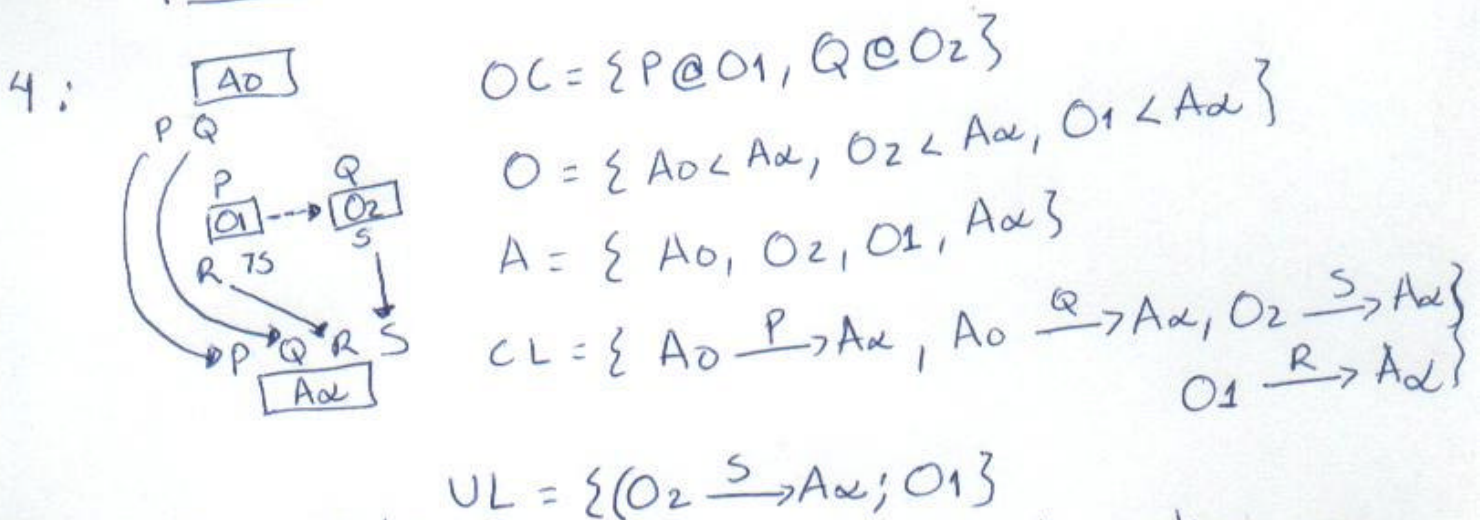 4:
A0
P Q
P
Q
O1
O2
R ¬S
S
P Q R S
Aα
OC = {P@O1, Q@O2}
O = { A0 < Aα, O2 < Aα, O1 < Aα }
A = { A0, O2, O1, Aα }
CL = { A0 –P→ Aα, A0 –Q→ Aα, O2 –S→ Aα}
O1 –R→ Aα}
UL = {(O2 –S→ Aα; O1}